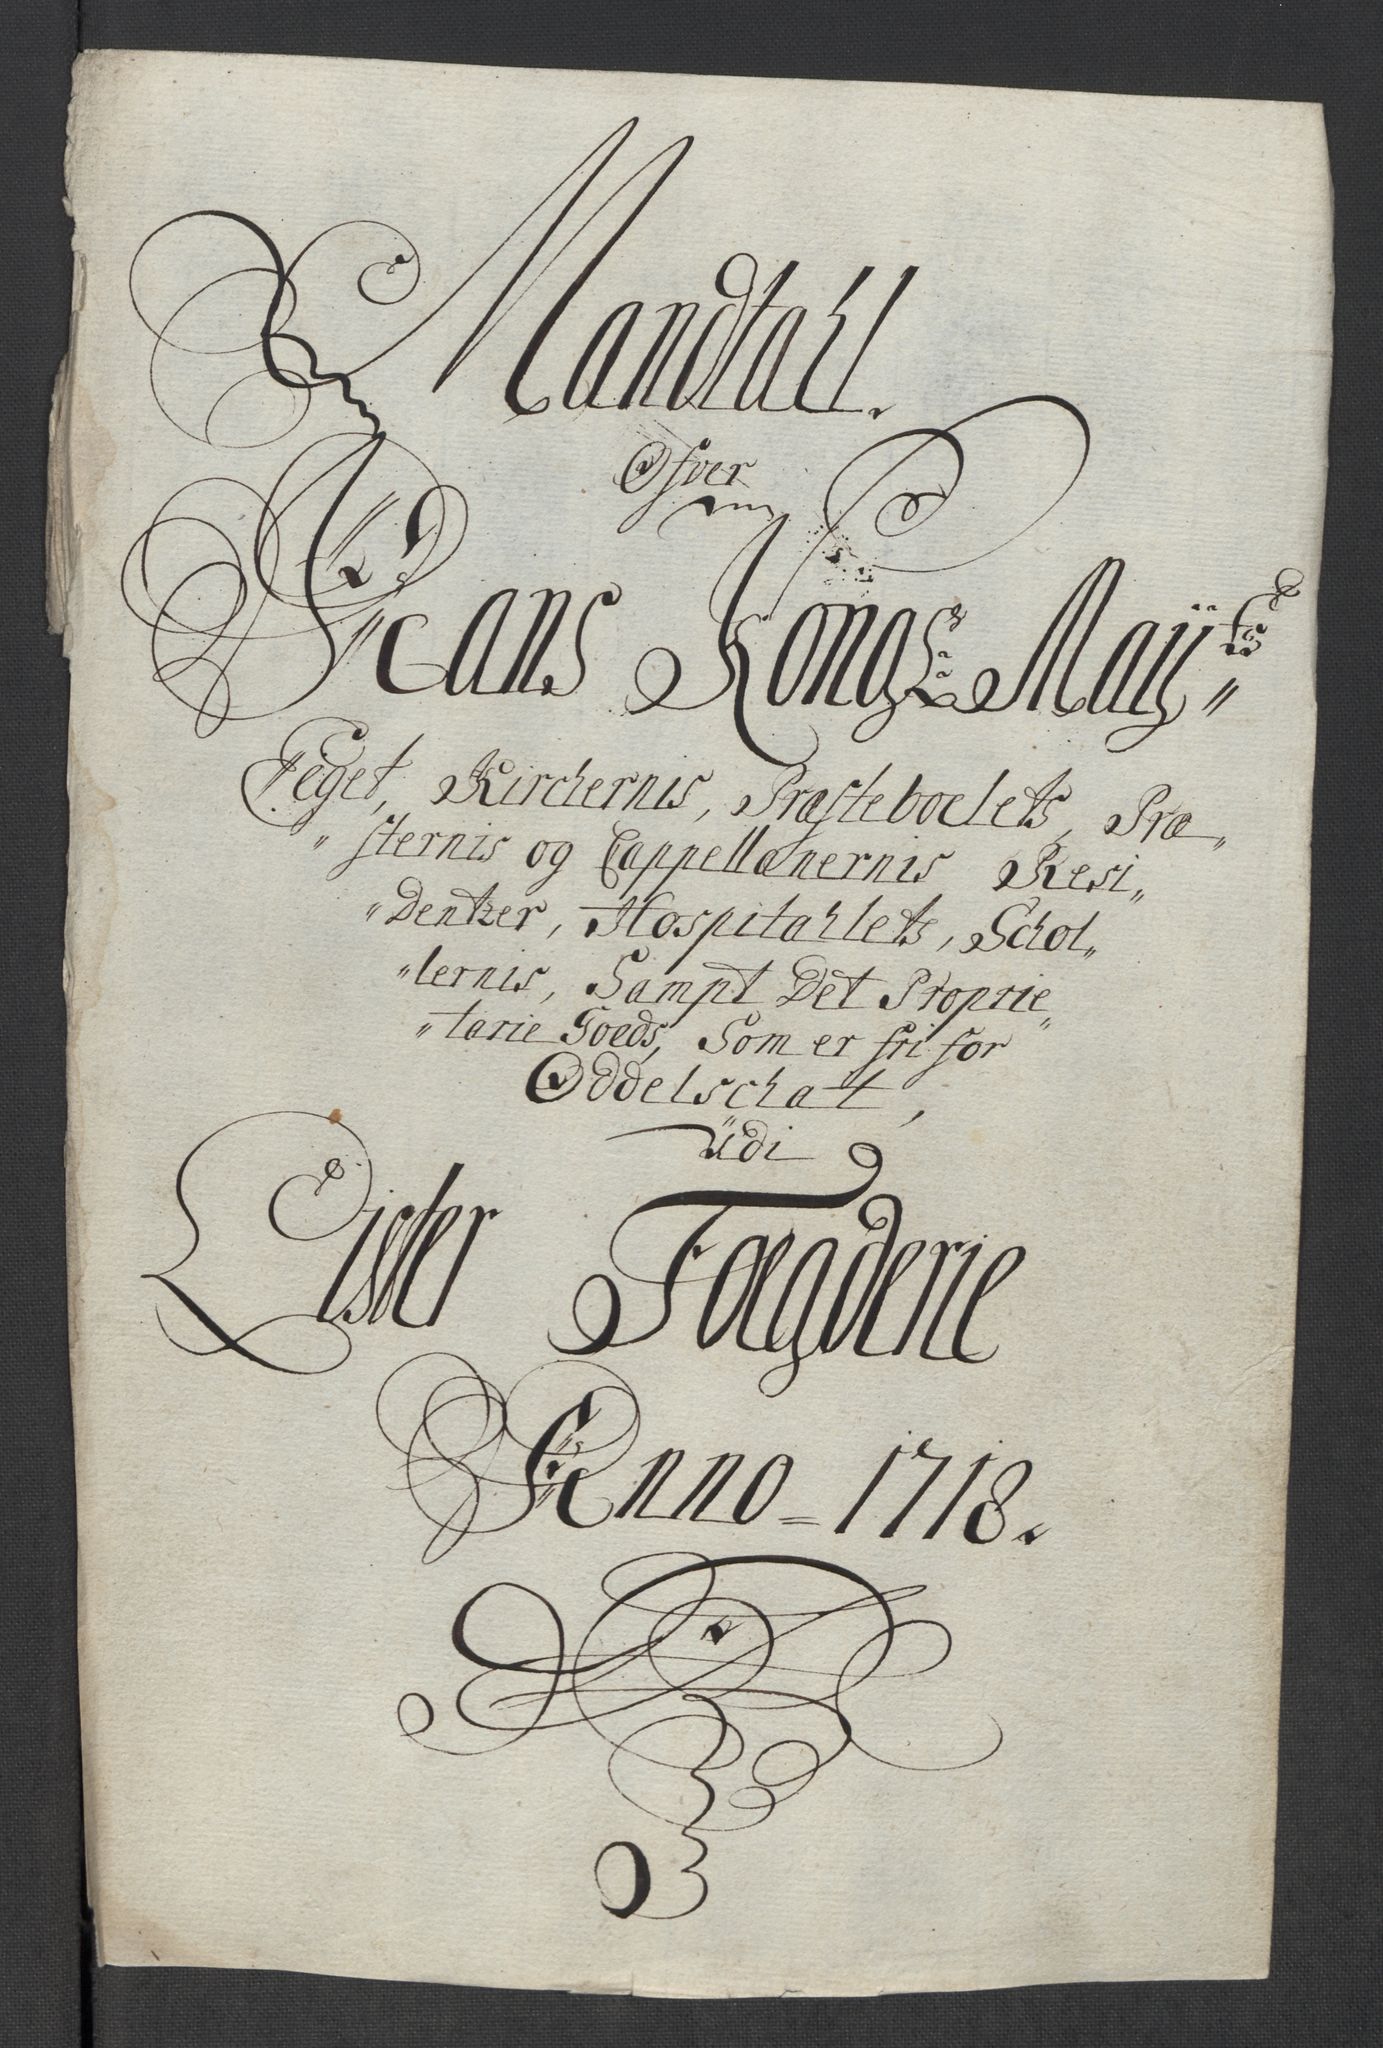 Mandtahl.
Ofver
Hans Kongl: Maÿts
Eeget, Kirchernis, Præsteboelets, Præ„
„sternis og Cappellænernis Resi„
„Dentzer, Hospitahlets, Schol„
„lernis, Sampt Det Proprie„
„tarie Goeds, Som er fri for
Oddelschatt,
üdi
Lister Fægderie
Anno = 1718.